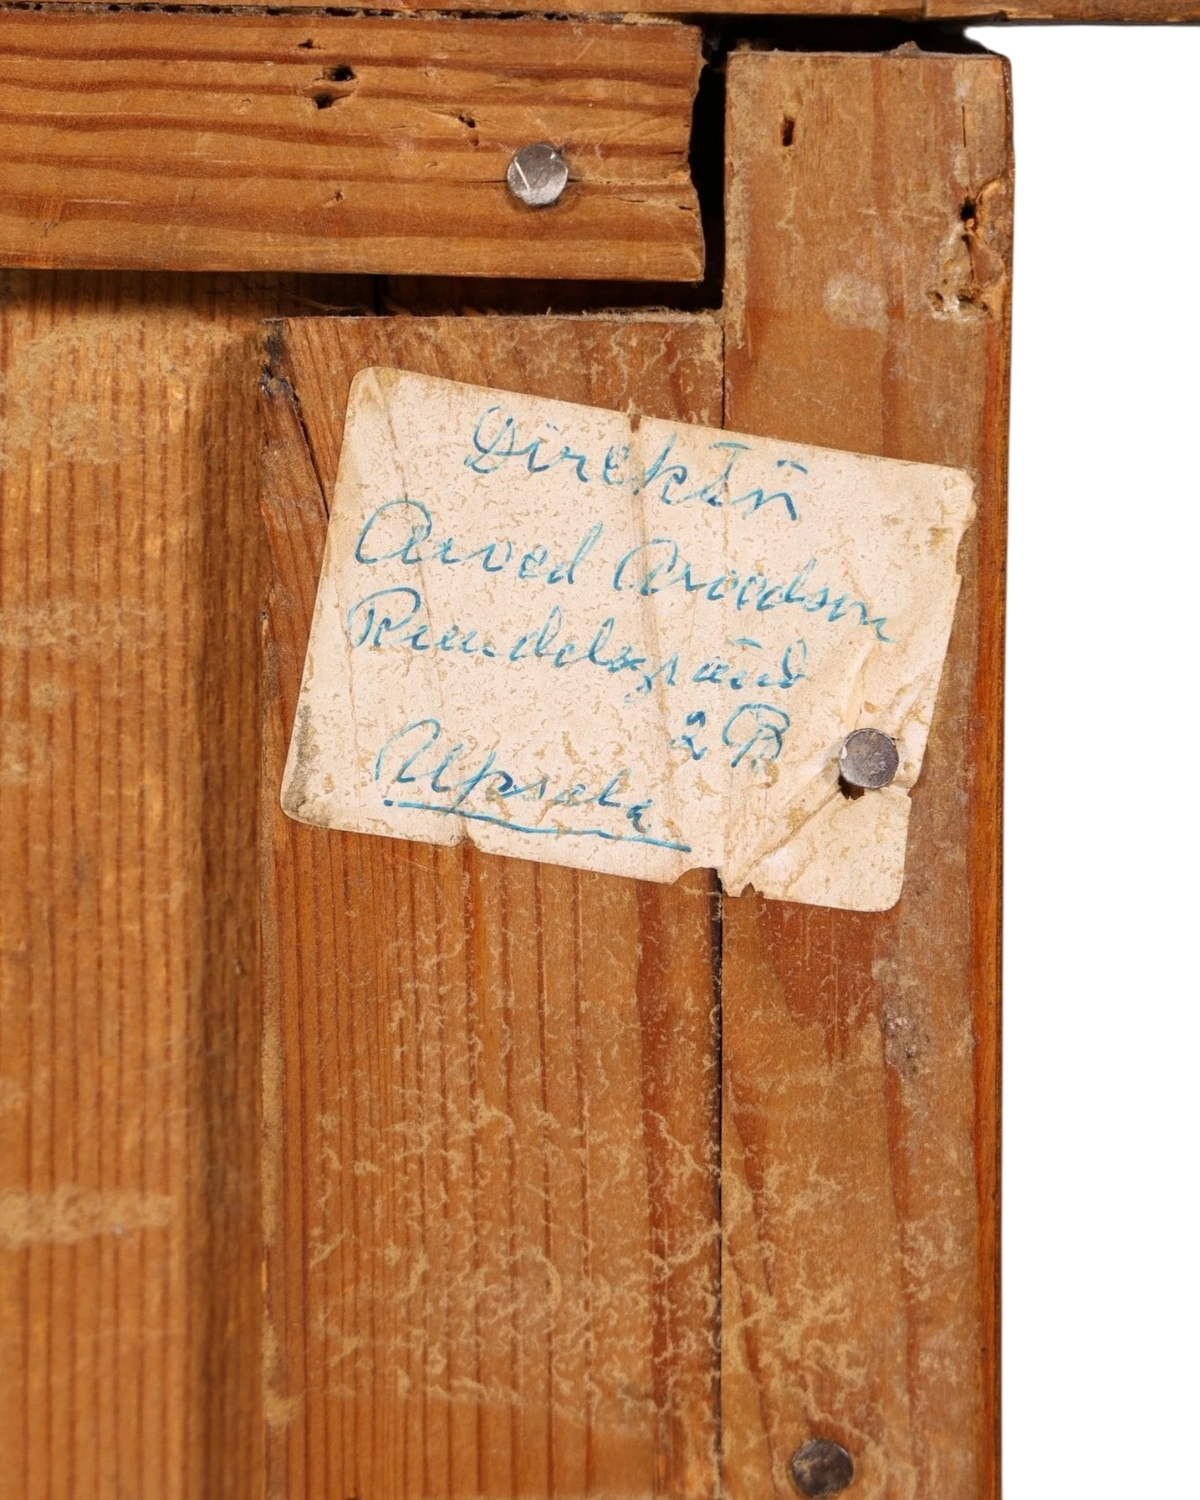 Direktör
Arved Arvedson
Rundelsgränd
2 B
Upsala